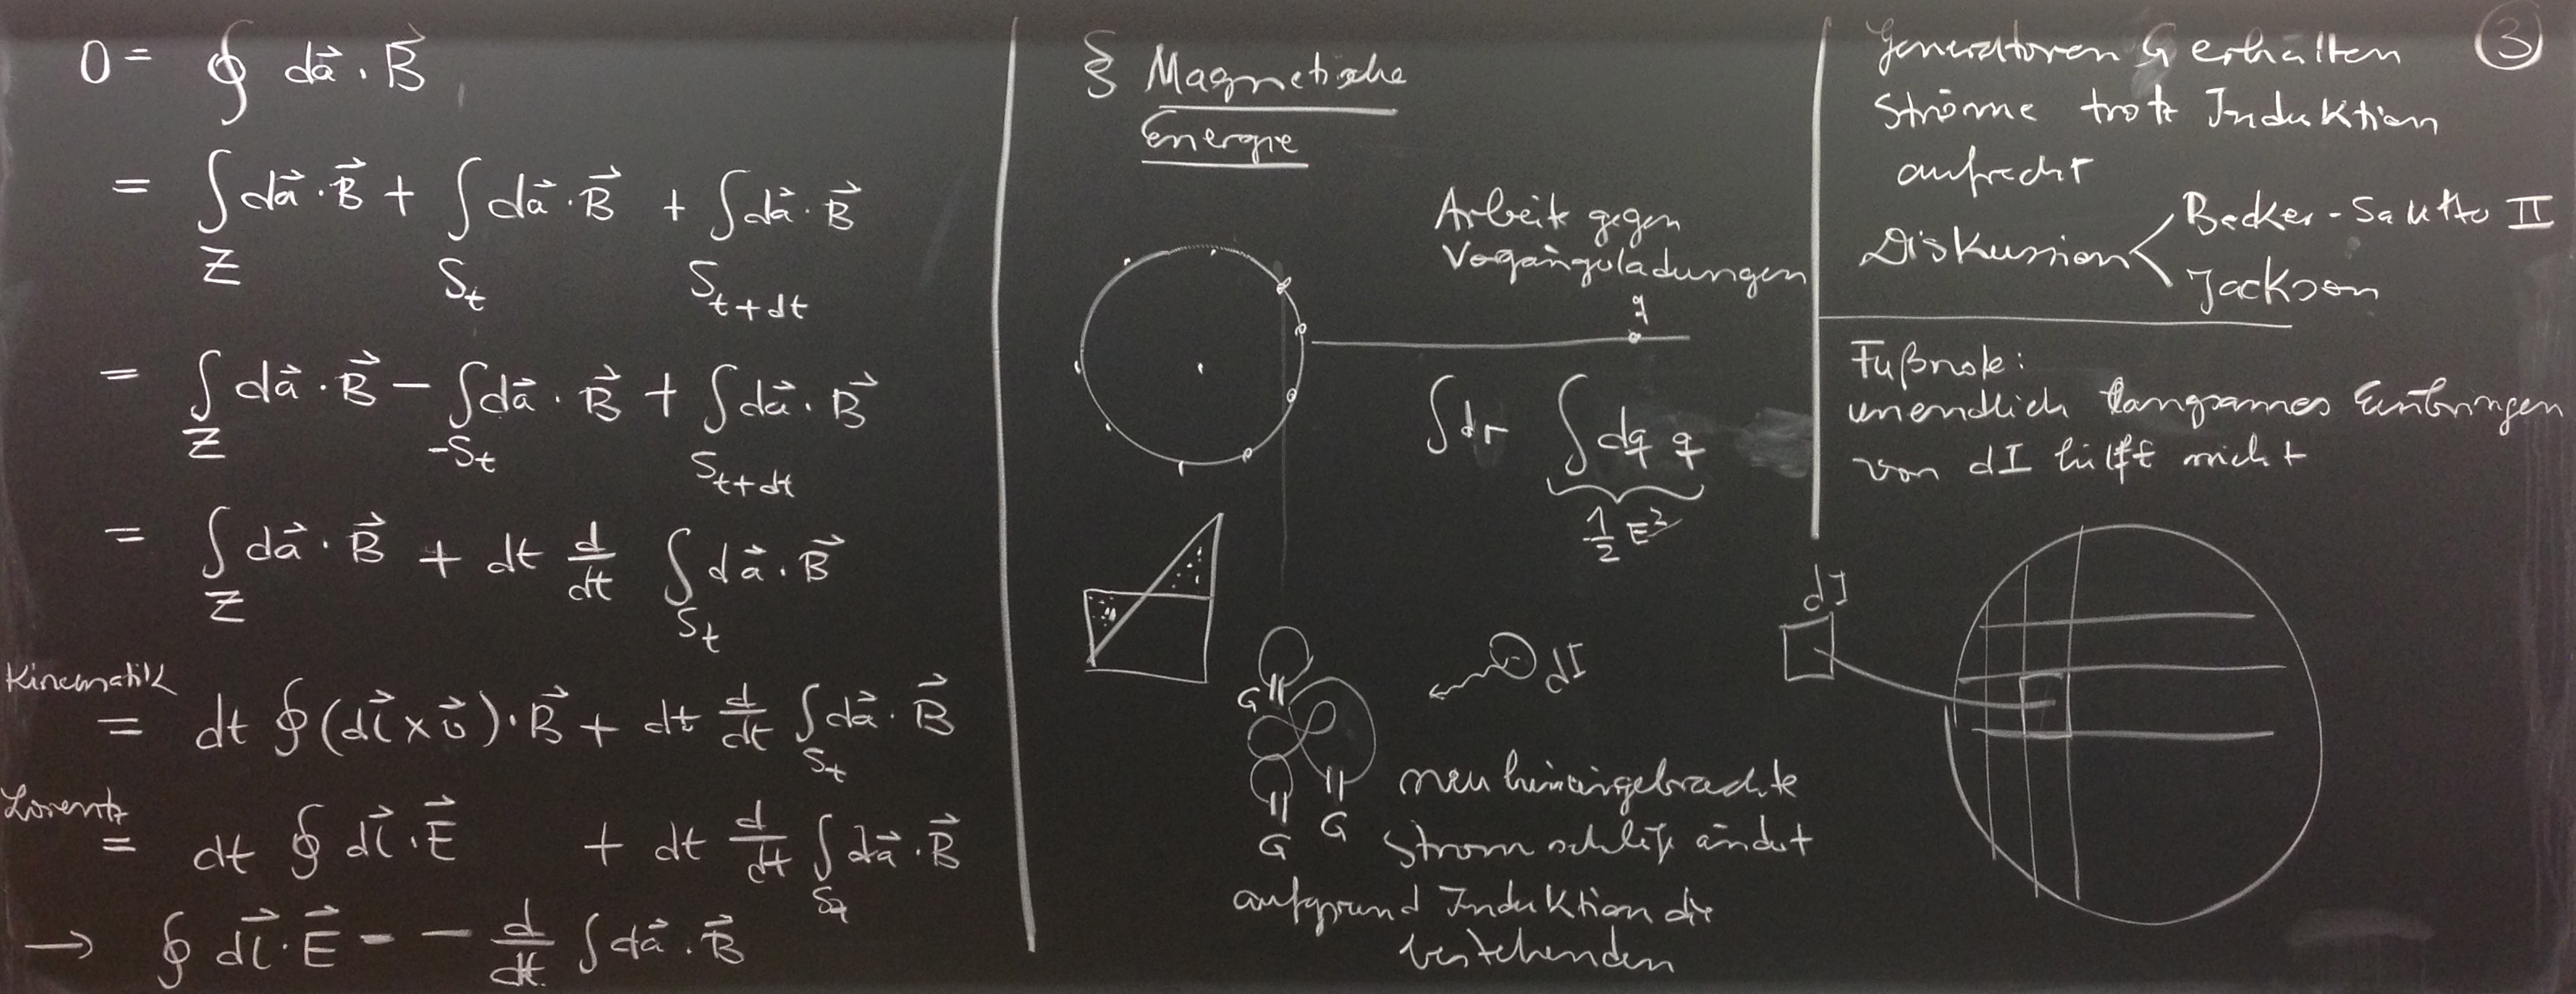 0 = ∮ da⃗ · B⃗
= ∫_Z da⃗ · B⃗ + ∫_{S_t} da⃗ · B⃗ + ∫_{S_{t+dt}} da⃗ · B⃗
= ∫_Z da⃗ · B⃗ − ∫_{-S_t} da⃗ · B⃗ + ∫_{S_{t+dt}} da⃗ · B⃗
= ∫_Z da⃗ · B⃗ + dt d/dt ∫_{S_t} da⃗ · B⃗
Kinematik
= dt ∮ (dl⃗ × v⃗) · B⃗ + dt d/dt ∫_{S_t} da⃗ · B⃗
Lorentz
= dt ∮ dl⃗ · E⃗ + dt d/dt ∫_{S_t} da⃗ · B⃗
→ ∮ dl⃗ · E⃗ = − d/dt ∫ da⃗ · B⃗
§ Magnetische
Energie
Arbeit gegen
Vogängerladungen
q
∫dr ∫dq q
1/2 E²
G
G
G
dI
neu hineingebrachte
Stromschleife ändert
aufgrund Induktion die
bestehenden
③
Generatoren G erhalten
Ströme trotz Induktion
aufrecht
Diskussion
Becker-Sautter II
Jackson
Fußnote:
unendlich langsames Einbringen
von dI hilft nicht
dI